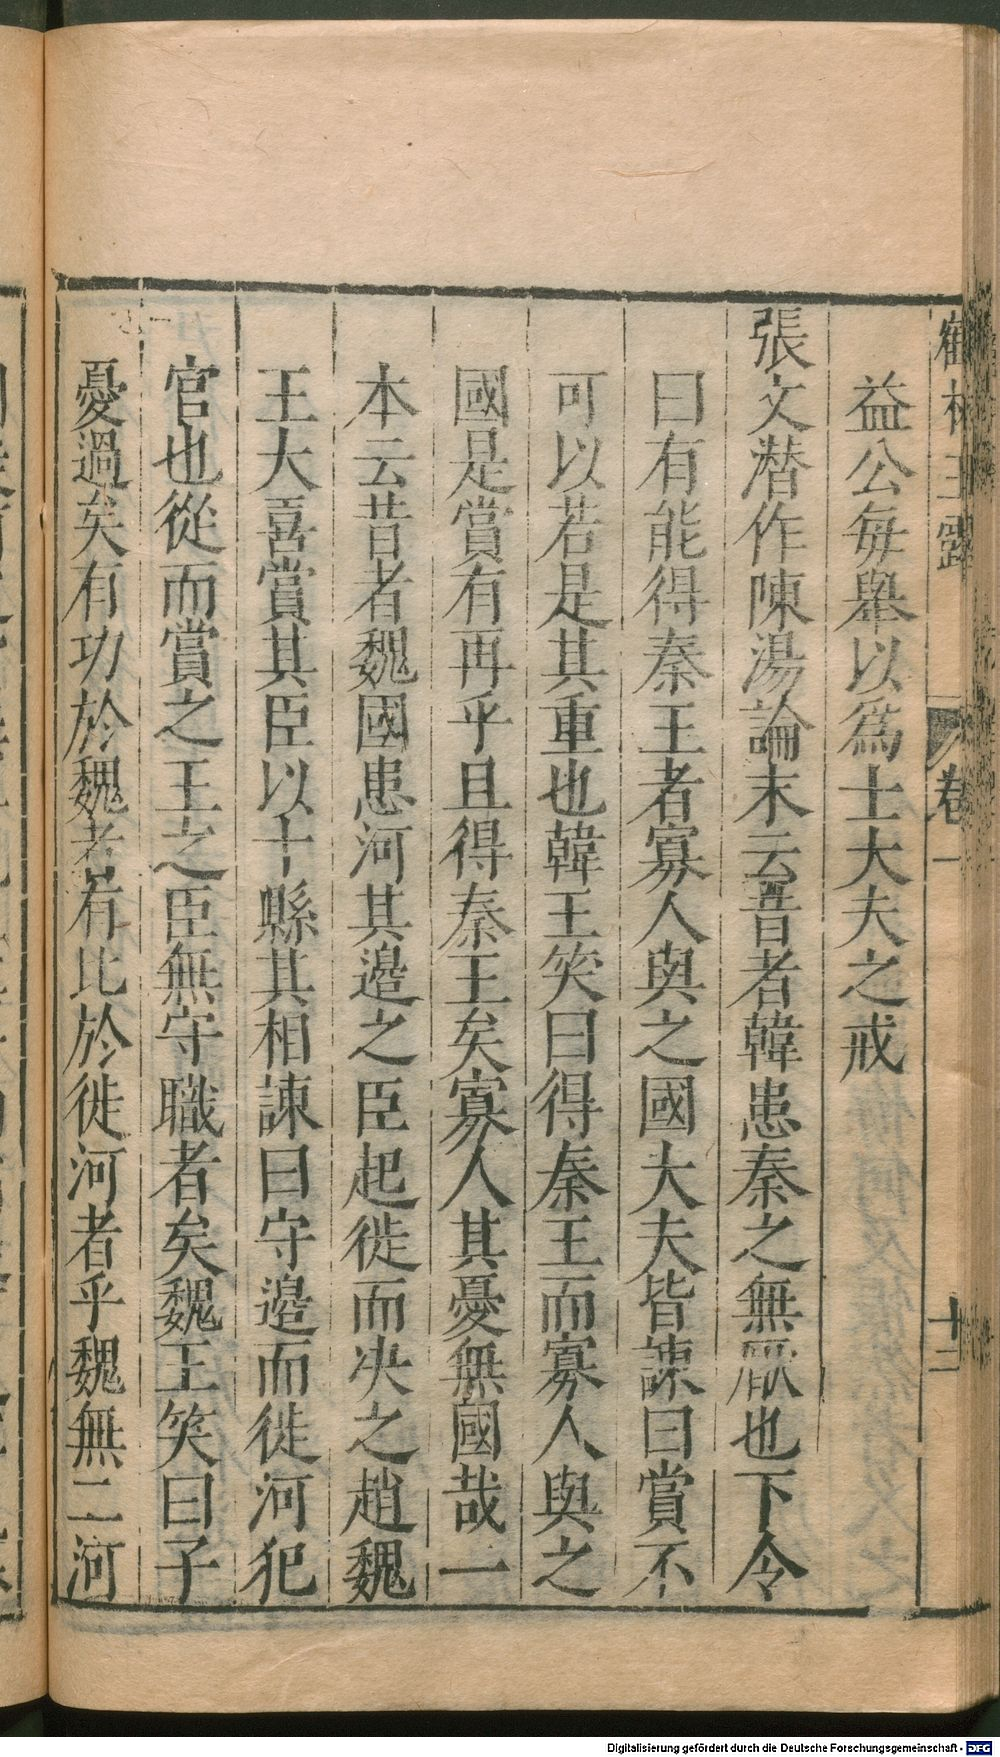 鶴林玉露 卷一 十二
益公每舉以爲士大夫之戒
張文潛作陳湯論末云昔者韓患秦之無厭也下令
曰有能得秦王者寡人與之國大夫皆諫曰賞不
可以若是其重也韓王笑曰得秦王而寡人與之
國是賞有再乎且得秦王矣寡人其憂無國哉一
本云昔者魏國患河其邉之臣起徙而决之趙魏
王大喜賞其臣以十縣其相諫曰守邉而徙河犯
官也從而賞之王之臣無守職者矣魏王笑曰子
憂過矣有功於魏者有比於徙河者乎魏無二河
Digitalisierung gefördert durch die Deutsche Forschungsgemeinschaft - DFG